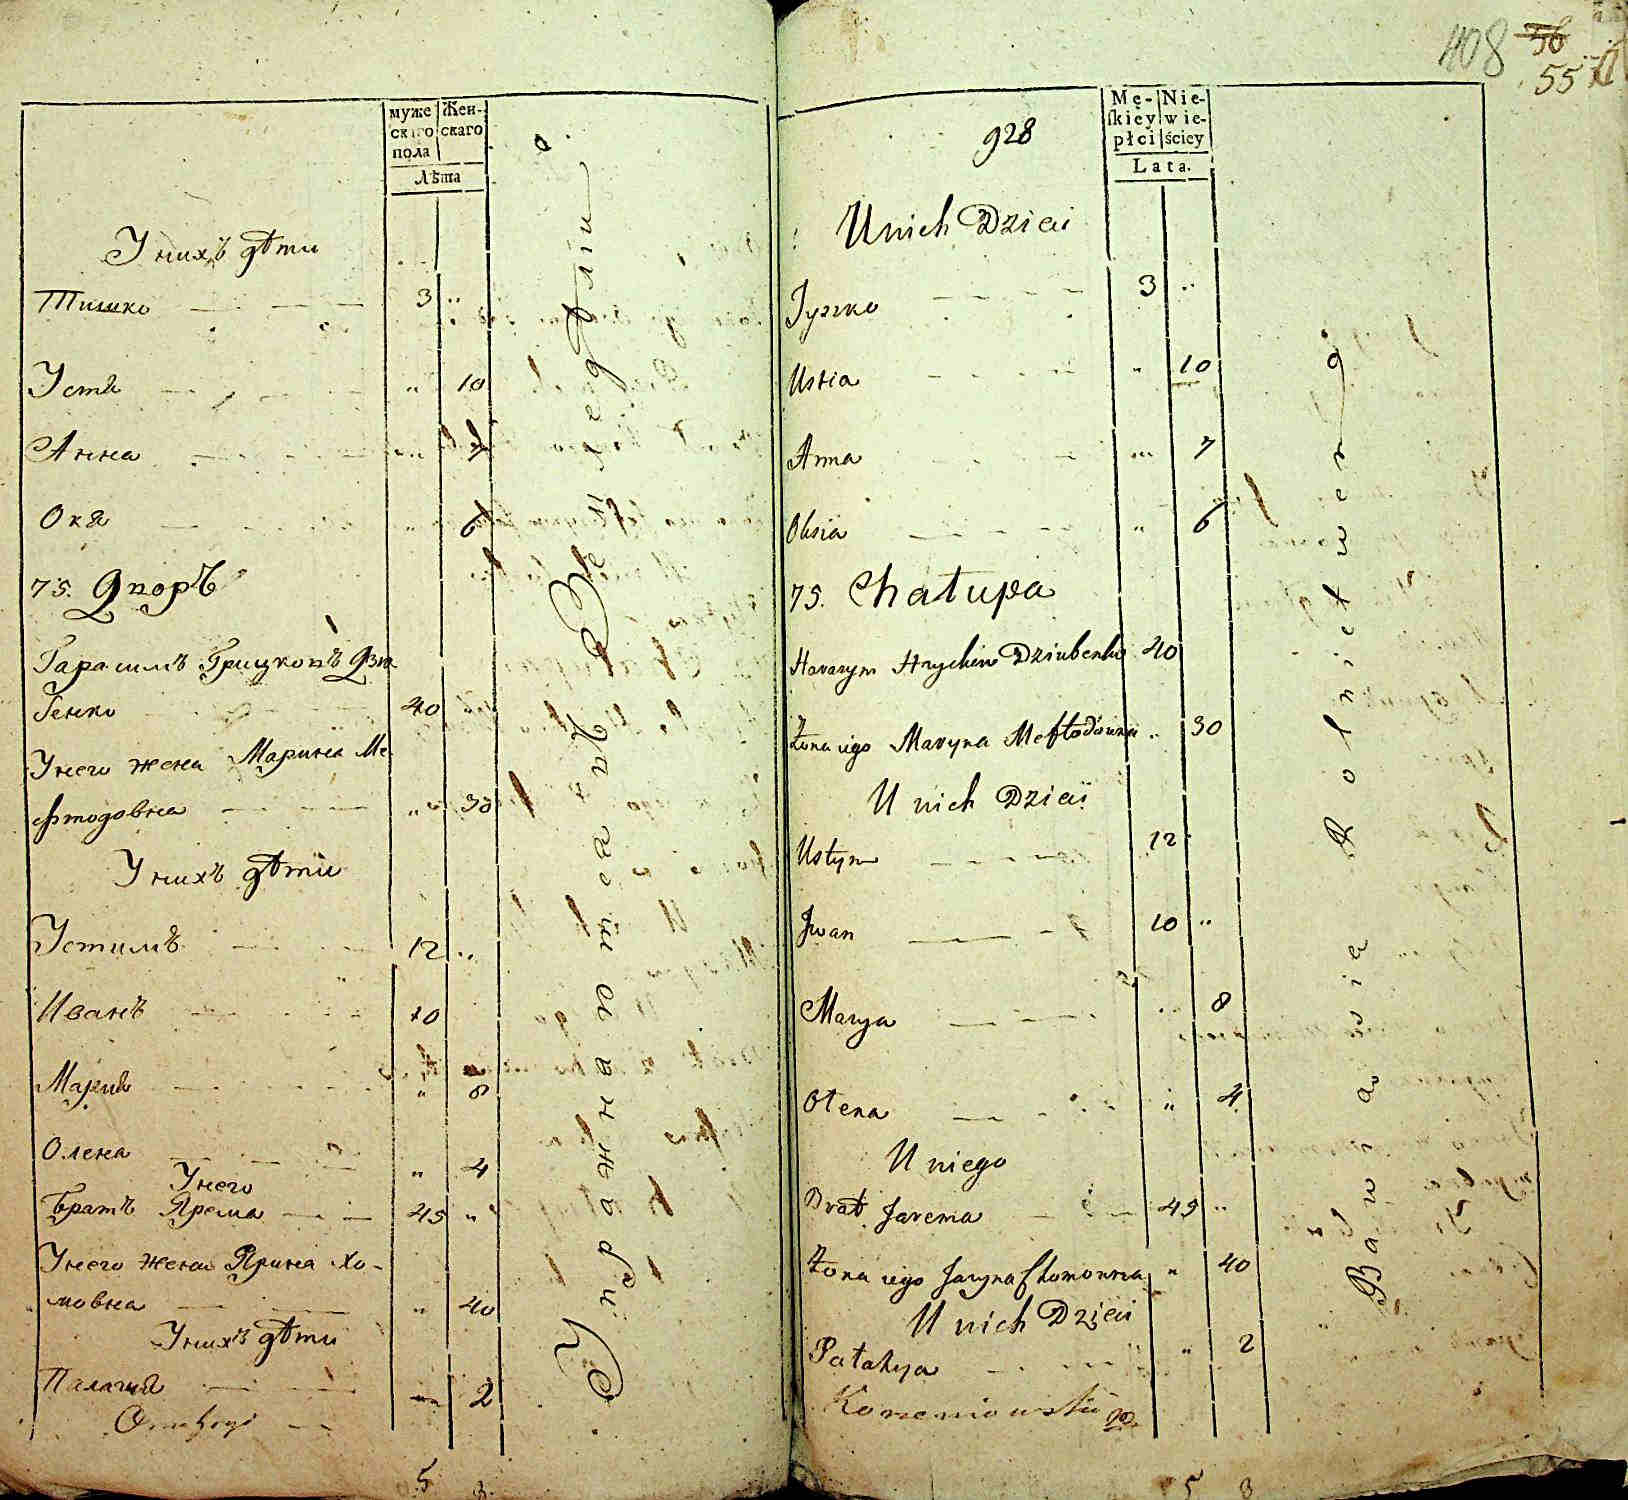 муже Жен-
скаго скаго
пола
Лѣта
У нихъ дѣти
Тишко 3 "
Устя " 10
Анна " 7
Окя " 6
75. Дворъ
Гарасимъ Грицковъ Дзю
бенко 40 "
У него жена Марина Ме
фтодовна " 30
У нихъ дѣти
Устимъ 12 "
Иванъ 10
Мария " 8
Олена " 4
У него
Братъ Ярема 45 "
У него жена Ярина Хо-
мовна " 40
У нихъ дѣти
Палагия " 2
5 3
408 56
55
928
Mę- Nie-
skiey wie-
płci ściey
Lata.
U nich Dzieci
Tyszko 3 "
Ustia " 10
Anna " 7
Oksia " 6
75. Chałupa
Harasym Hryckow Dziubenko 40
Żona iego Maryna Meftodowna " 30
U nich Dzieci
Ustym 12
Jwan 10 "
Marya " 8
Ołena " 4
U niego
Brat Jarema 45 "
Żona iego Jaryna Chomowna " 40
U nich Dzieci
Pałahya " 2
5 3